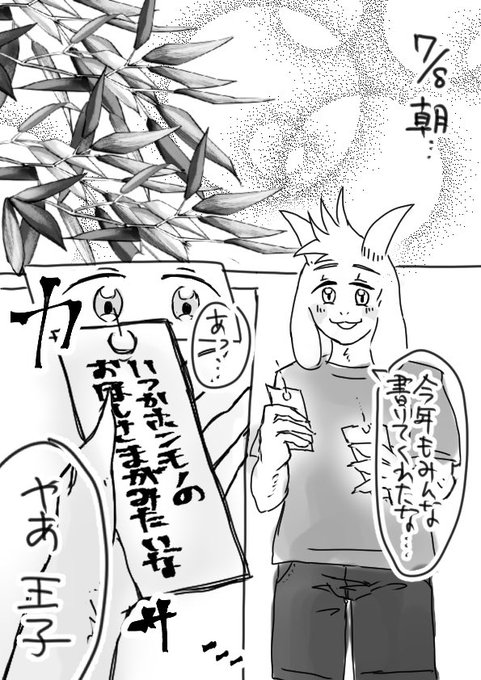 7/8 朝…
今年もみんな
書いてくれたな…
あっ…
カサ
いつかホンモノの
お星さまがみたいな
やあ 王子